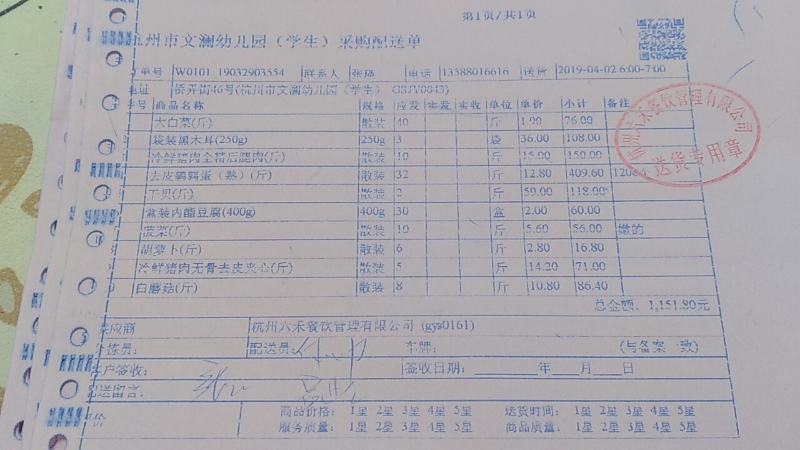 第1页/共1页
杭州市文澜幼儿园（学生）采购配送单
订单号 W0101_19032903554 联系人 张瑶 电话 13588016616 送货 2019-04-02 6:00-7:00
地址 侨开街46号(杭州市文澜幼儿园（学生） GSJY0043)
序号 商品名称 规格 应发 实发 实收 单位 单价 小计 备注
大白菜(斤) 散装 40 斤 1.90 76.00
袋装黑木耳(250g) 250g 3 袋 36.00 108.00
冷鲜猪肉全精后腿肉(斤) 散装 10 斤 15.00 150.00
去皮鹌鹑蛋（熟）(斤) 散装 32 斤 12.80 409.60
干贝(斤) 散装 2 斤 59.00 118.00
盒装内酯豆腐(400g) 400g 30 盒 2.00 60.00
菠菜(斤) 散装 10 斤 5.60 56.00 嫩的
胡萝卜(斤) 散装 6 斤 2.80 16.80
冷鲜猪肉无骨去皮夹心(斤) 散装 5 斤 14.20 71.00
白蘑菇(斤) 散装 8 斤 10.80 86.40
总金额：1,151.80元
供应商 杭州六禾餐饮管理有限公司 (gys0161)
分拣员: 配送员: 车牌: (与备案一致)
客户签收: 签收日期: 年 月 日
配送留言:
评价 商品价格: 1星 2星 3星 4星 5星 送货时间: 1星 2星 3星 4星 5星
服务质量: 1星 2星 3星 4星 5星 商品质量: 1星 2星 3星 4星 5星
杭州六禾餐饮管理有限公司
送货专用章